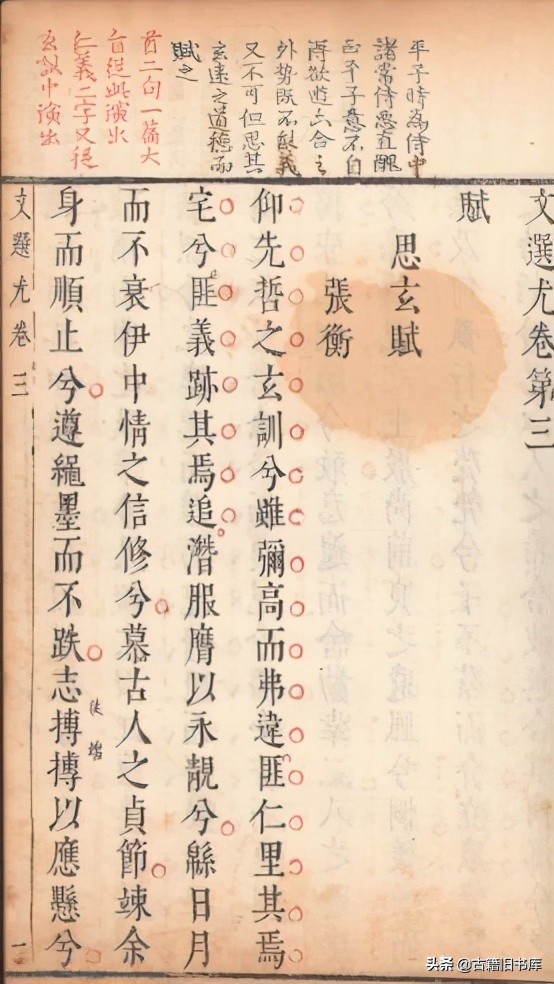 平子時為侍中
諸常侍惡直醜
正平子意不自
得欲遊六合之
外勢既不能義
又不可但思其
玄遠之道而
賦之
首二句一篇大
旨從此演出
仁義二字又從
玄訓中演出
文選尤卷第三
賦
思玄賦
張衡
仰先哲之玄訓兮雖彌高而弗違匪仁里其焉
宅兮匪義跡其焉追潛服膺以永靚兮緜日月
而不衰伊中情之信修兮慕古人之貞節竦余
身而順止兮遵繩墨而不跌志摶摶以應懸兮
徒端
文選尤卷三
一
头条 @古籍旧书库